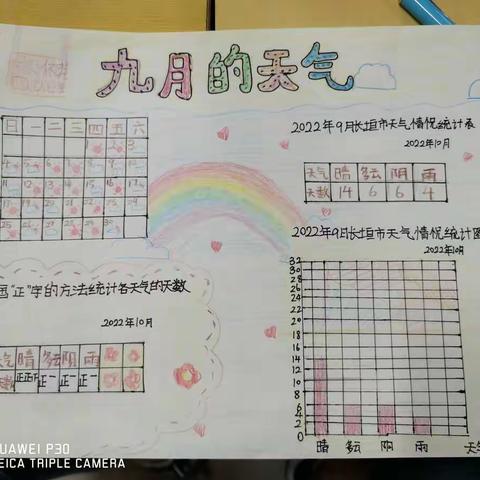 九月的天气
日 一 二 三 四 五 六
2022年9月长垣市天气情况统计表
2022年10月
天气 晴 多云 阴 雨
天数 14 6 6 4
2022年9月长垣市天气情况统计图
2022年10月
32
30
28
26
24
22
20
18
16
14
12
10
8
6
4
2
0
晴 多云 阴 雨 天气
"正"字的方法统计各天气的天数
2022年10月
天气 晴 多云 阴 雨
天数 正正 正一 正一 正
HUAWEI P30
LEICA TRIPLE CAMERA